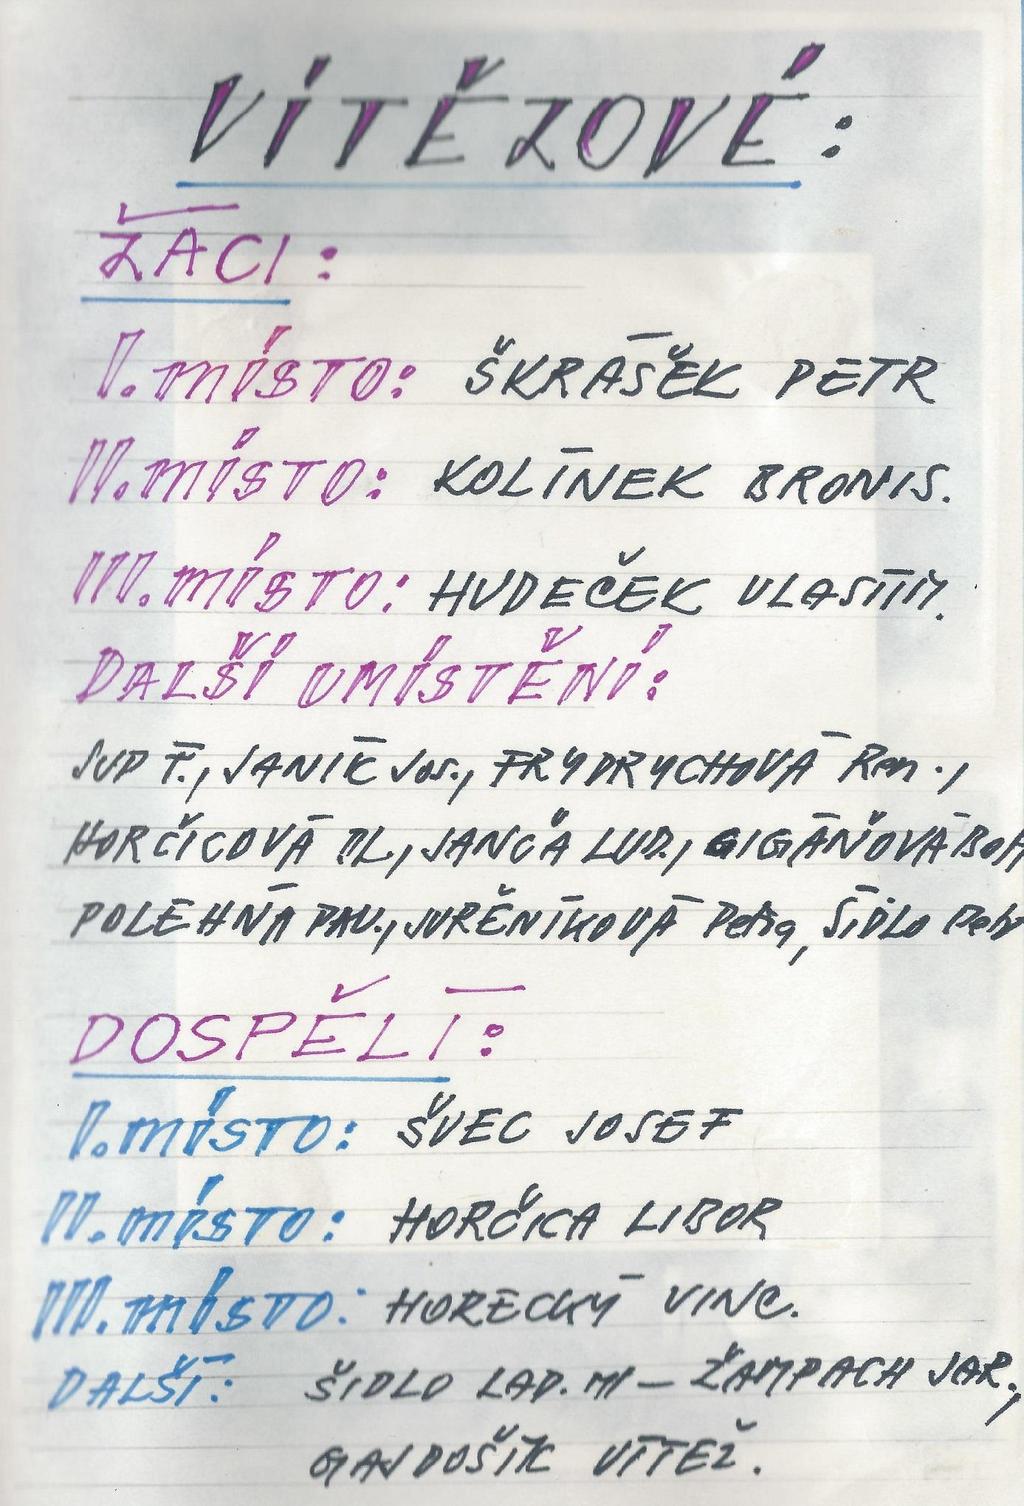 VÍTĚZOVÉ:
ŽÁCI:
I. MÍSTO: ŠKRÁŠEK PETR
II. MÍSTO: KOLÍNEK BRONIS.
III. MÍSTO: HUDEČEK VLASTIM.
DALŠÍ UMÍSTĚNÍ:
JANÍK JOS., FRYDRYCHOVÁ
HORČICOVÁ JANČA LUD., GIGÁŇOVÁ
POLEHŇA PAV., JUREČNÍKOVÁ Petra, ŠÍDLO Petr
DOSPĚLÍ:
I. MÍSTO: ŠVEC JOSEF
II. MÍSTO: HORČICA LIBOR
III. MÍSTO: HORECKÝ VINC.
DALŠÍ: ŠIDLO LAD. ML — ŽAMPACH JAR.,
GAJDOŠÍK VÍTEŽ.